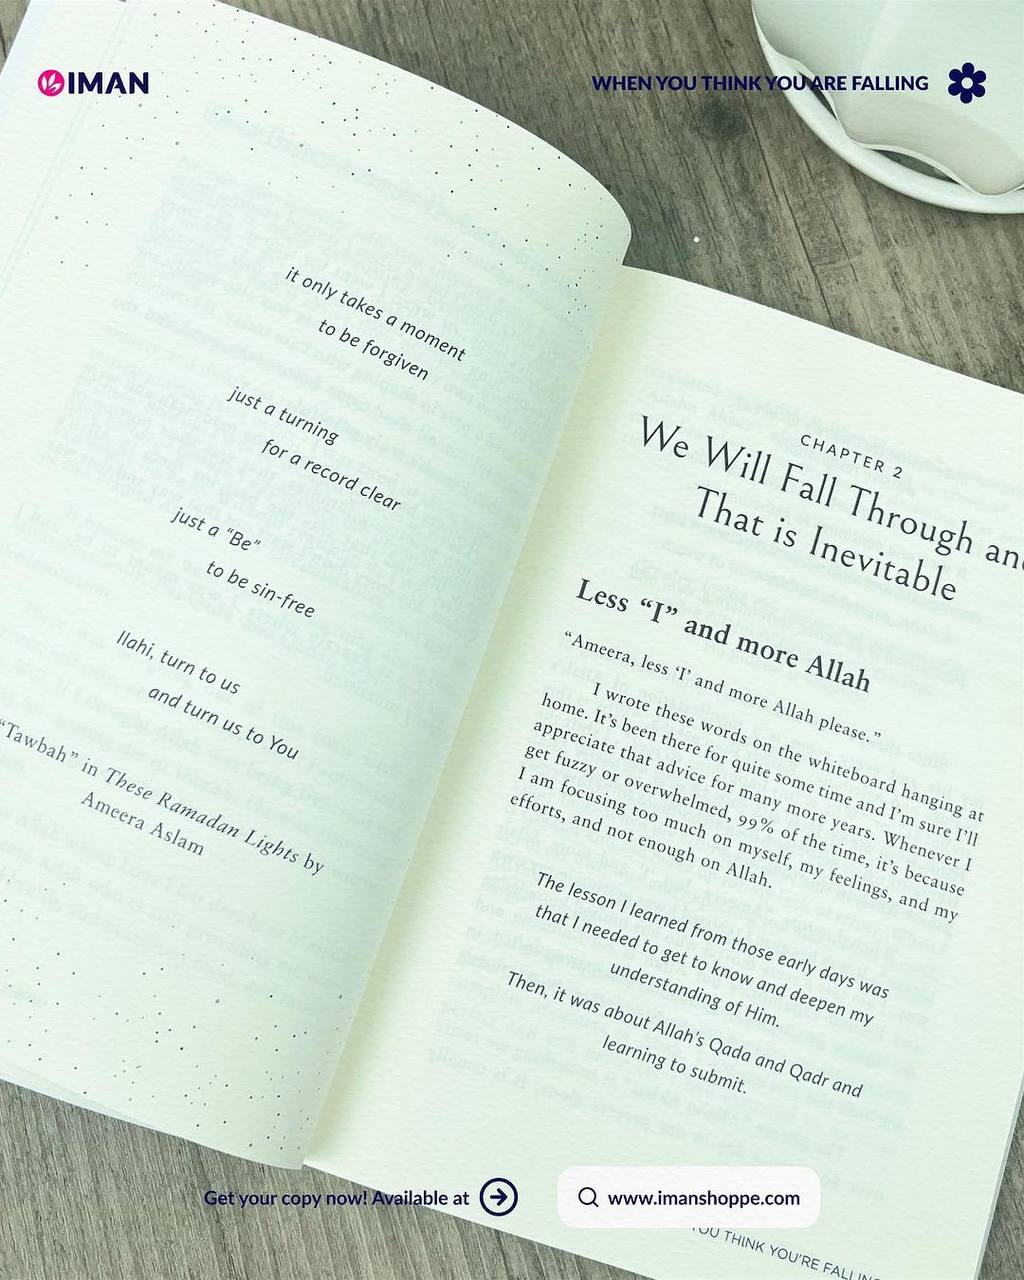 IMAN
WHEN YOU THINK YOU ARE FALLING
it only takes a moment
to be forgiven
just a turning
for a record clear
just a “Be”
to be sin-free
Ilahi, turn to us
and turn us to You
“Tawbah” in These Ramadan Lights by
Ameera Aslam
CHAPTER 2
We Will Fall Through and
That is Inevitable
Less “I” and more Allah
“Ameera, less ‘I’ and more Allah please.”
I wrote these words on the whiteboard hanging at
home. It’s been there for quite some time and I’m sure I’ll
appreciate that advice for many more years. Whenever I
get fuzzy or overwhelmed, 99% of the time, it’s because
I am focusing too much on myself, my feelings, and my
efforts, and not enough on Allah.
The lesson I learned from those early days was
that I needed to get to know and deepen my
understanding of Him.
Then, it was about Allah’s Qada and Qadr and
learning to submit.
Get your copy now! Available at
www.imanshoppe.com
YOU THINK YOU’RE FALLING